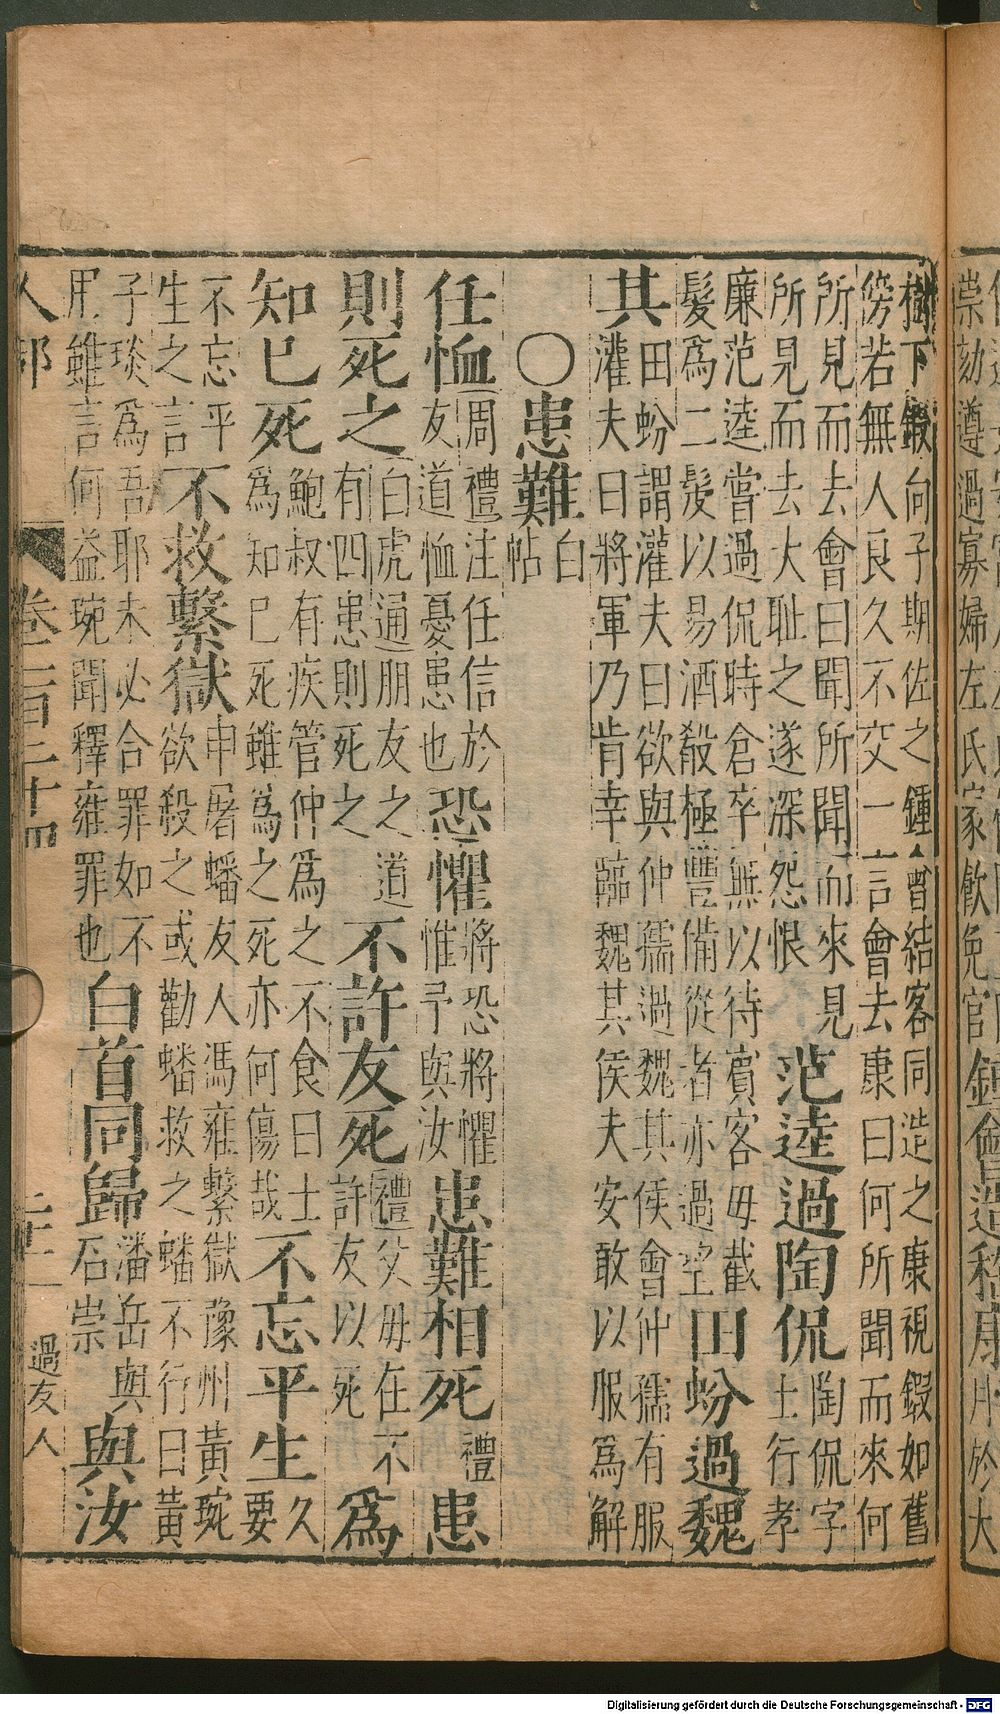 崇劾遵過寡婦左氏家飲免官鍾會造稽康於大
樹下鍛向子期佐之鍾會結客同造之康視鍛如舊
傍若無人良久不交一言會去康曰何所聞而來何
所見而去會曰聞所聞而來見
所見而去大耻之遂深怨恨
范逵過陶侃
陶侃字
士行孝
廉范逵嘗過侃時倉卒無以待賓客毋截
髮爲二髲以易酒殽極豐備從者亦過
田蚡過魏
其
田蚡謂灌夫曰欲與仲孺過魏其侯會仲孺有服
灌夫曰將軍乃肯幸臨魏其侯夫安敢以服爲解
○患難
白
帖
任恤
周禮注任信於
友道恤憂患也
恐懼
將恐將懼
惟予與汝
患難相死
禮
患
則死之
白虎通朋友之道
有四患則死之
不許友死
禮父毋在不
許友以死
爲
知巳死
鮑叔有疾管仲爲之不食曰士
爲知巳死雖爲之死亦何傷哉
不忘平生
久
要
不忘平
生之言
不救繫獄
申屠蟠友人馮雍繫獄豫州黃琬
欲殺之或勸蟠救之蟠不行曰黃
子琰爲吾耶未必合罪如不
用雖言何益琬聞釋雍罪也
白首同歸
潘岳與
石崇
與汝
人部
卷二百二十四
過友人
Digitalisierung gefördert durch die Deutsche Forschungsgemeinschaft - DFG